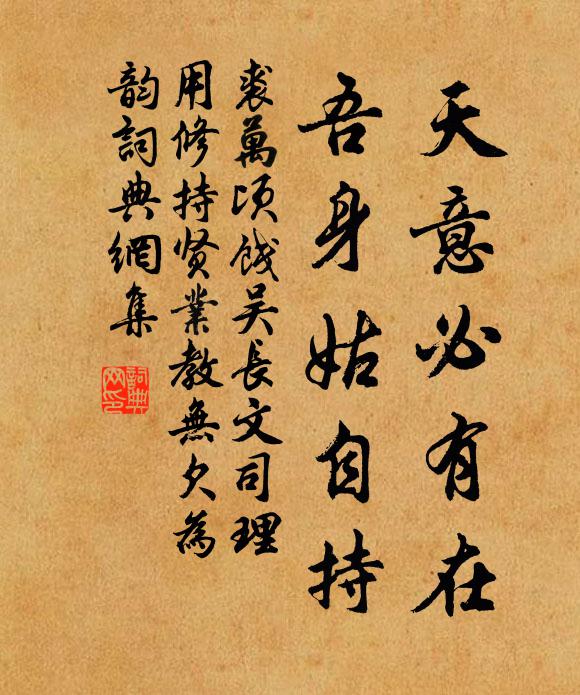 天意必有在
吾身姑自持
裘萬頃餞吴長文司理
用修持贤業教無欠為
韵詞典網集
詞典
网印